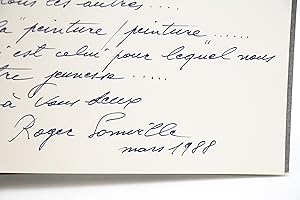 tous les autres....
la "peinture/peinture"......
est celui" pour lequel nous
tre jeunesse.....
à vous deux
Roger Somville
mars 1988